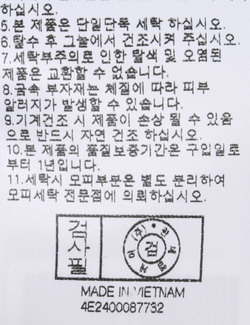 하십시오.
5.본 제품은 단일단독 세탁 하십시오.
6.탈수 후 그늘에서 건조시켜 주십시오.
7.세탁부주의로 인한 탈색 및 오염된
제품은 교환할 수 없습니다.
8.금속 부자재는 체질에 따라 피부
알러지가 발생할 수 있습니다.
9.기계건조 시 제품이 손상 될 수 있음
으로 반드시 자연 건조 하십시오.
10.본 제품의 품질보증기간은 구입일로
부터 1년입니다.
11.세탁시 모피부분은 별도 분리하여
모피세탁 전문점에 의뢰하십시오.
검사필
(주)
검
MADE IN VIETNAM
4E2400087732